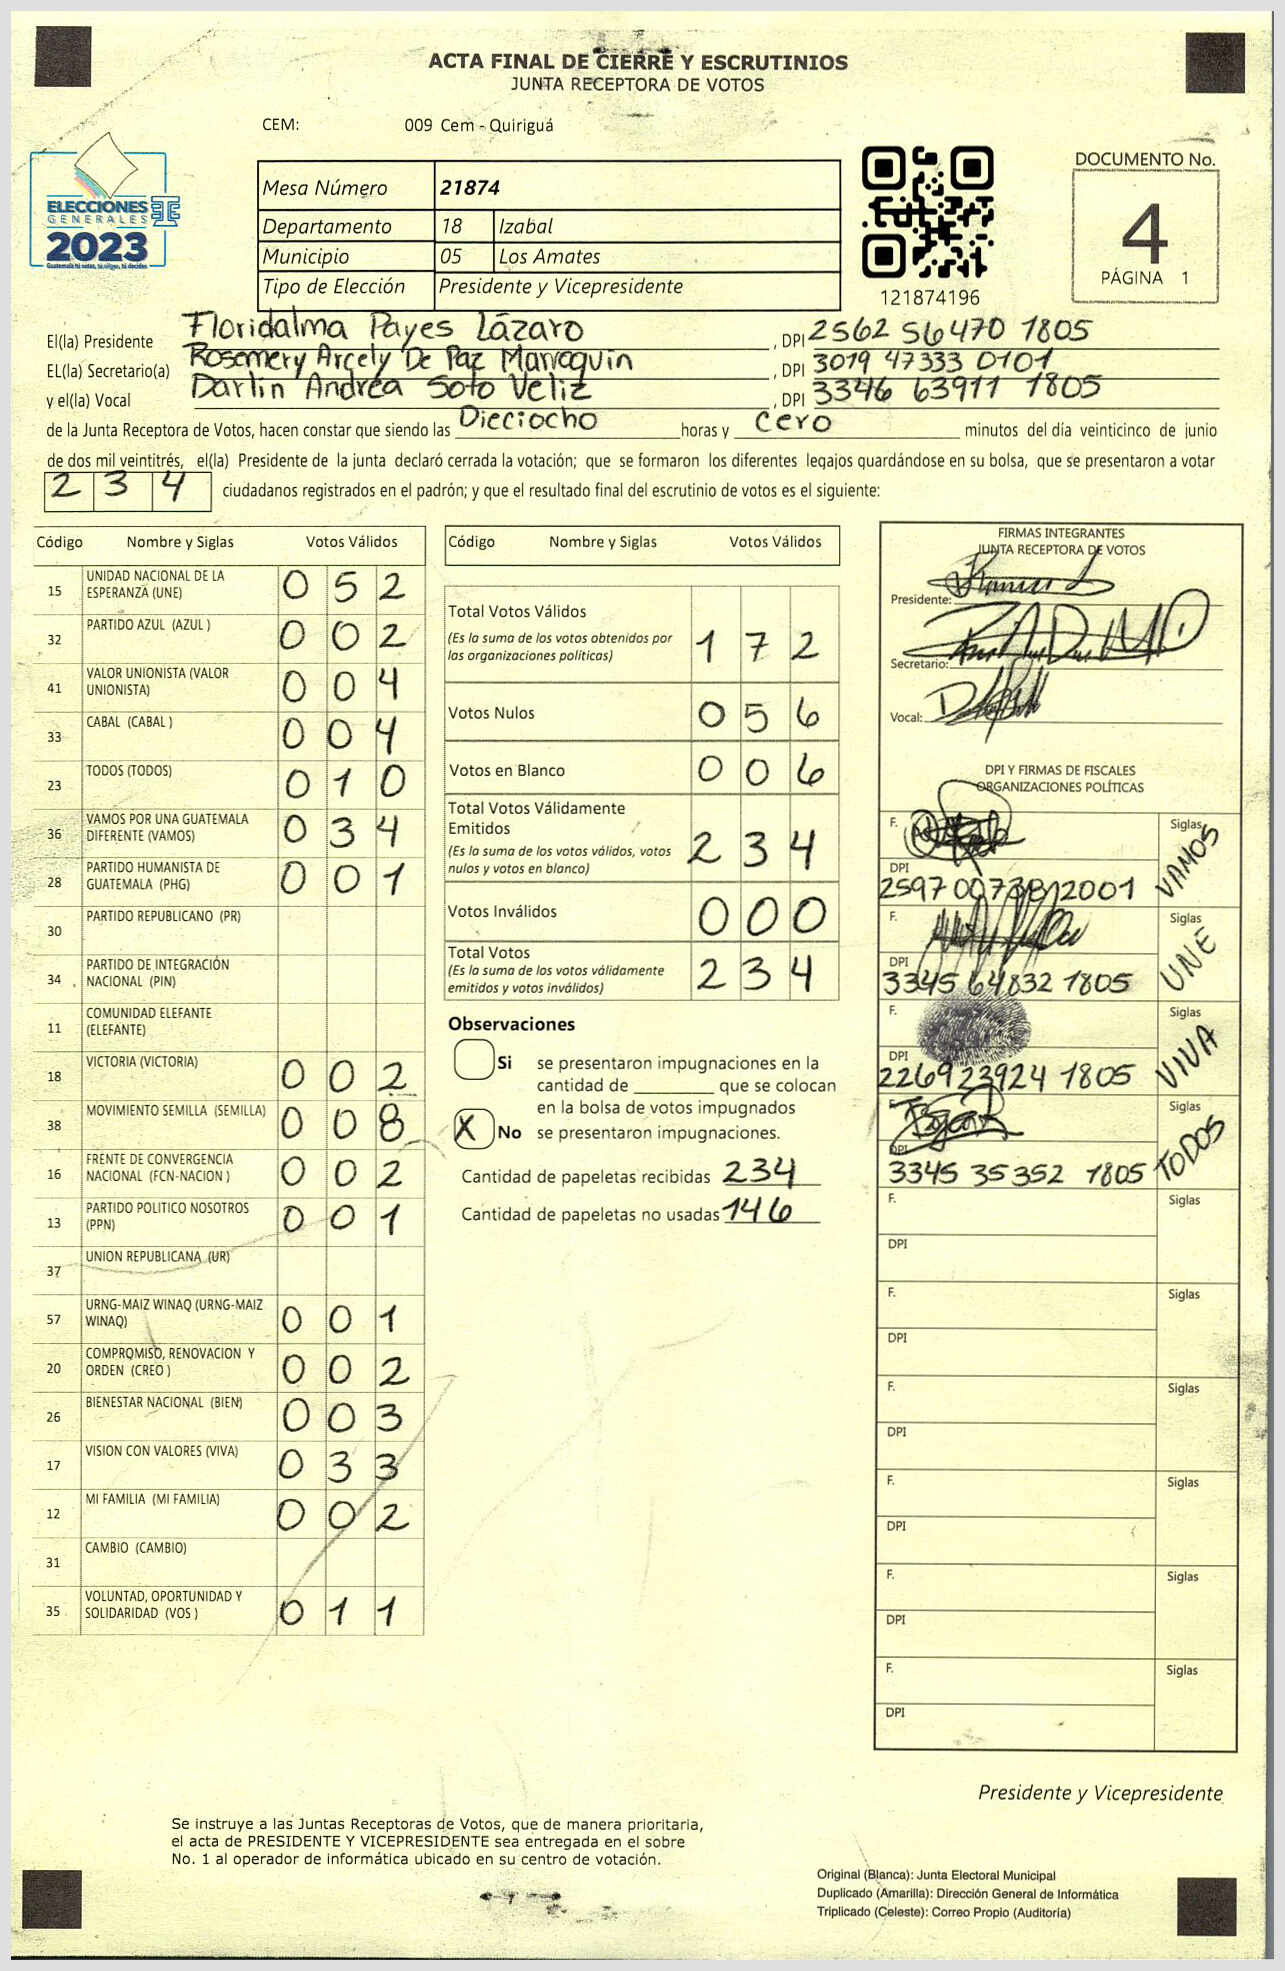 ACTA FINAL DE CIERRE Y ESCRUTINIOS
JUNTA RECEPTORA DE VOTOS
CEM: 009 Cem - Quiriguá
ELECCIONES
GENERALES
2023
Guatemala tú votas, tú eliges, tú decides
Mesa Número 21874
Departamento 18 Izabal
Municipio 05 Los Amates
Tipo de Elección Presidente y Vicepresidente
121874196
DOCUMENTO No.
4
PÁGINA 1
El(la) Presidente Floridalma Payes Lázaro , DPI 2562 56470 1805
EL(la) Secretario(a) Rosemery Arcely De Paz Marroquin , DPI 3019 47333 0101
y el(la) Vocal Darlin Andrea Soto Veliz , DPI 3346 63911 1805
de la Junta Receptora de Votos, hacen constar que siendo las Dieciocho horas y cero minutos del día veinticinco de junio
de dos mil veintitrés, el(la) Presidente de la junta declaró cerrada la votación; que se formaron los diferentes legajos guardándose en su bolsa, que se presentaron a votar
234 ciudadanos registrados en el padrón; y que el resultado final del escrutinio de votos es el siguiente:
Código Nombre y Siglas Votos Válidos
15 UNIDAD NACIONAL DE LA ESPERANZA (UNE) 052
32 PARTIDO AZUL (AZUL ) 002
41 VALOR UNIONISTA (VALOR UNIONISTA) 004
33 CABAL (CABAL ) 004
23 TODOS (TODOS) 010
36 VAMOS POR UNA GUATEMALA DIFERENTE (VAMOS) 034
28 PARTIDO HUMANISTA DE GUATEMALA (PHG) 001
30 PARTIDO REPUBLICANO (PR)
34 PARTIDO DE INTEGRACIÓN NACIONAL (PIN)
11 COMUNIDAD ELEFANTE (ELEFANTE)
18 VICTORIA (VICTORIA) 002
38 MOVIMIENTO SEMILLA (SEMILLA) 008
16 FRENTE DE CONVERGENCIA NACIONAL (FCN-NACION ) 002
13 PARTIDO POLITICO NOSOTROS (PPN) 001
37 UNION REPUBLICANA (UR)
57 URNG-MAIZ WINAQ (URNG-MAIZ WINAQ) 001
20 COMPROMISO, RENOVACION Y ORDEN (CREO ) 002
26 BIENESTAR NACIONAL (BIEN) 003
17 VISION CON VALORES (VIVA) 033
12 MI FAMILIA (MI FAMILIA) 002
31 CAMBIO (CAMBIO)
35 VOLUNTAD, OPORTUNIDAD Y SOLIDARIDAD (VOS ) 011
Código Nombre y Siglas Votos Válidos
Total Votos Válidos
(Es la suma de los votos obtenidos por las organizaciones políticas) 172
Votos Nulos 056
Votos en Blanco 006
Total Votos Válidamente Emitidos
(Es la suma de los votos válidos, votos nulos y votos en blanco) 234
Votos Inválidos 000
Total Votos
(Es la suma de los votos válidamente emitidos y votos inválidos) 234
Observaciones
Si se presentaron impugnaciones en la
cantidad de ________ que se colocan
en la bolsa de votos impugnados
X No se presentaron impugnaciones.
Cantidad de papeletas recibidas 234
Cantidad de papeletas no usadas 146
FIRMAS INTEGRANTES
JUNTA RECEPTORA DE VOTOS
Presidente:
Secretario:
Vocal:
DPI Y FIRMAS DE FISCALES
ORGANIZACIONES POLÍTICAS
F. Siglas VAMOS
DPI 2597 00738 2001
F. Siglas UNE
DPI 3345 64832 1805
F. Siglas VIVA
DPI 2269 23924 1805
F. Siglas TODOS
DPI 3345 35352 1805
F. Siglas
DPI
F. Siglas
DPI
F. Siglas
DPI
F. Siglas
DPI
F. Siglas
DPI
F. Siglas
DPI
Presidente y Vicepresidente
Se instruye a las Juntas Receptoras de Votos, que de manera prioritaria,
el acta de PRESIDENTE Y VICEPRESIDENTE sea entregada en el sobre
No. 1 al operador de informática ubicado en su centro de votación.
Original (Blanca): Junta Electoral Municipal
Duplicado (Amarilla): Dirección General de Informática
Triplicado (Celeste): Correo Propio (Auditoría)